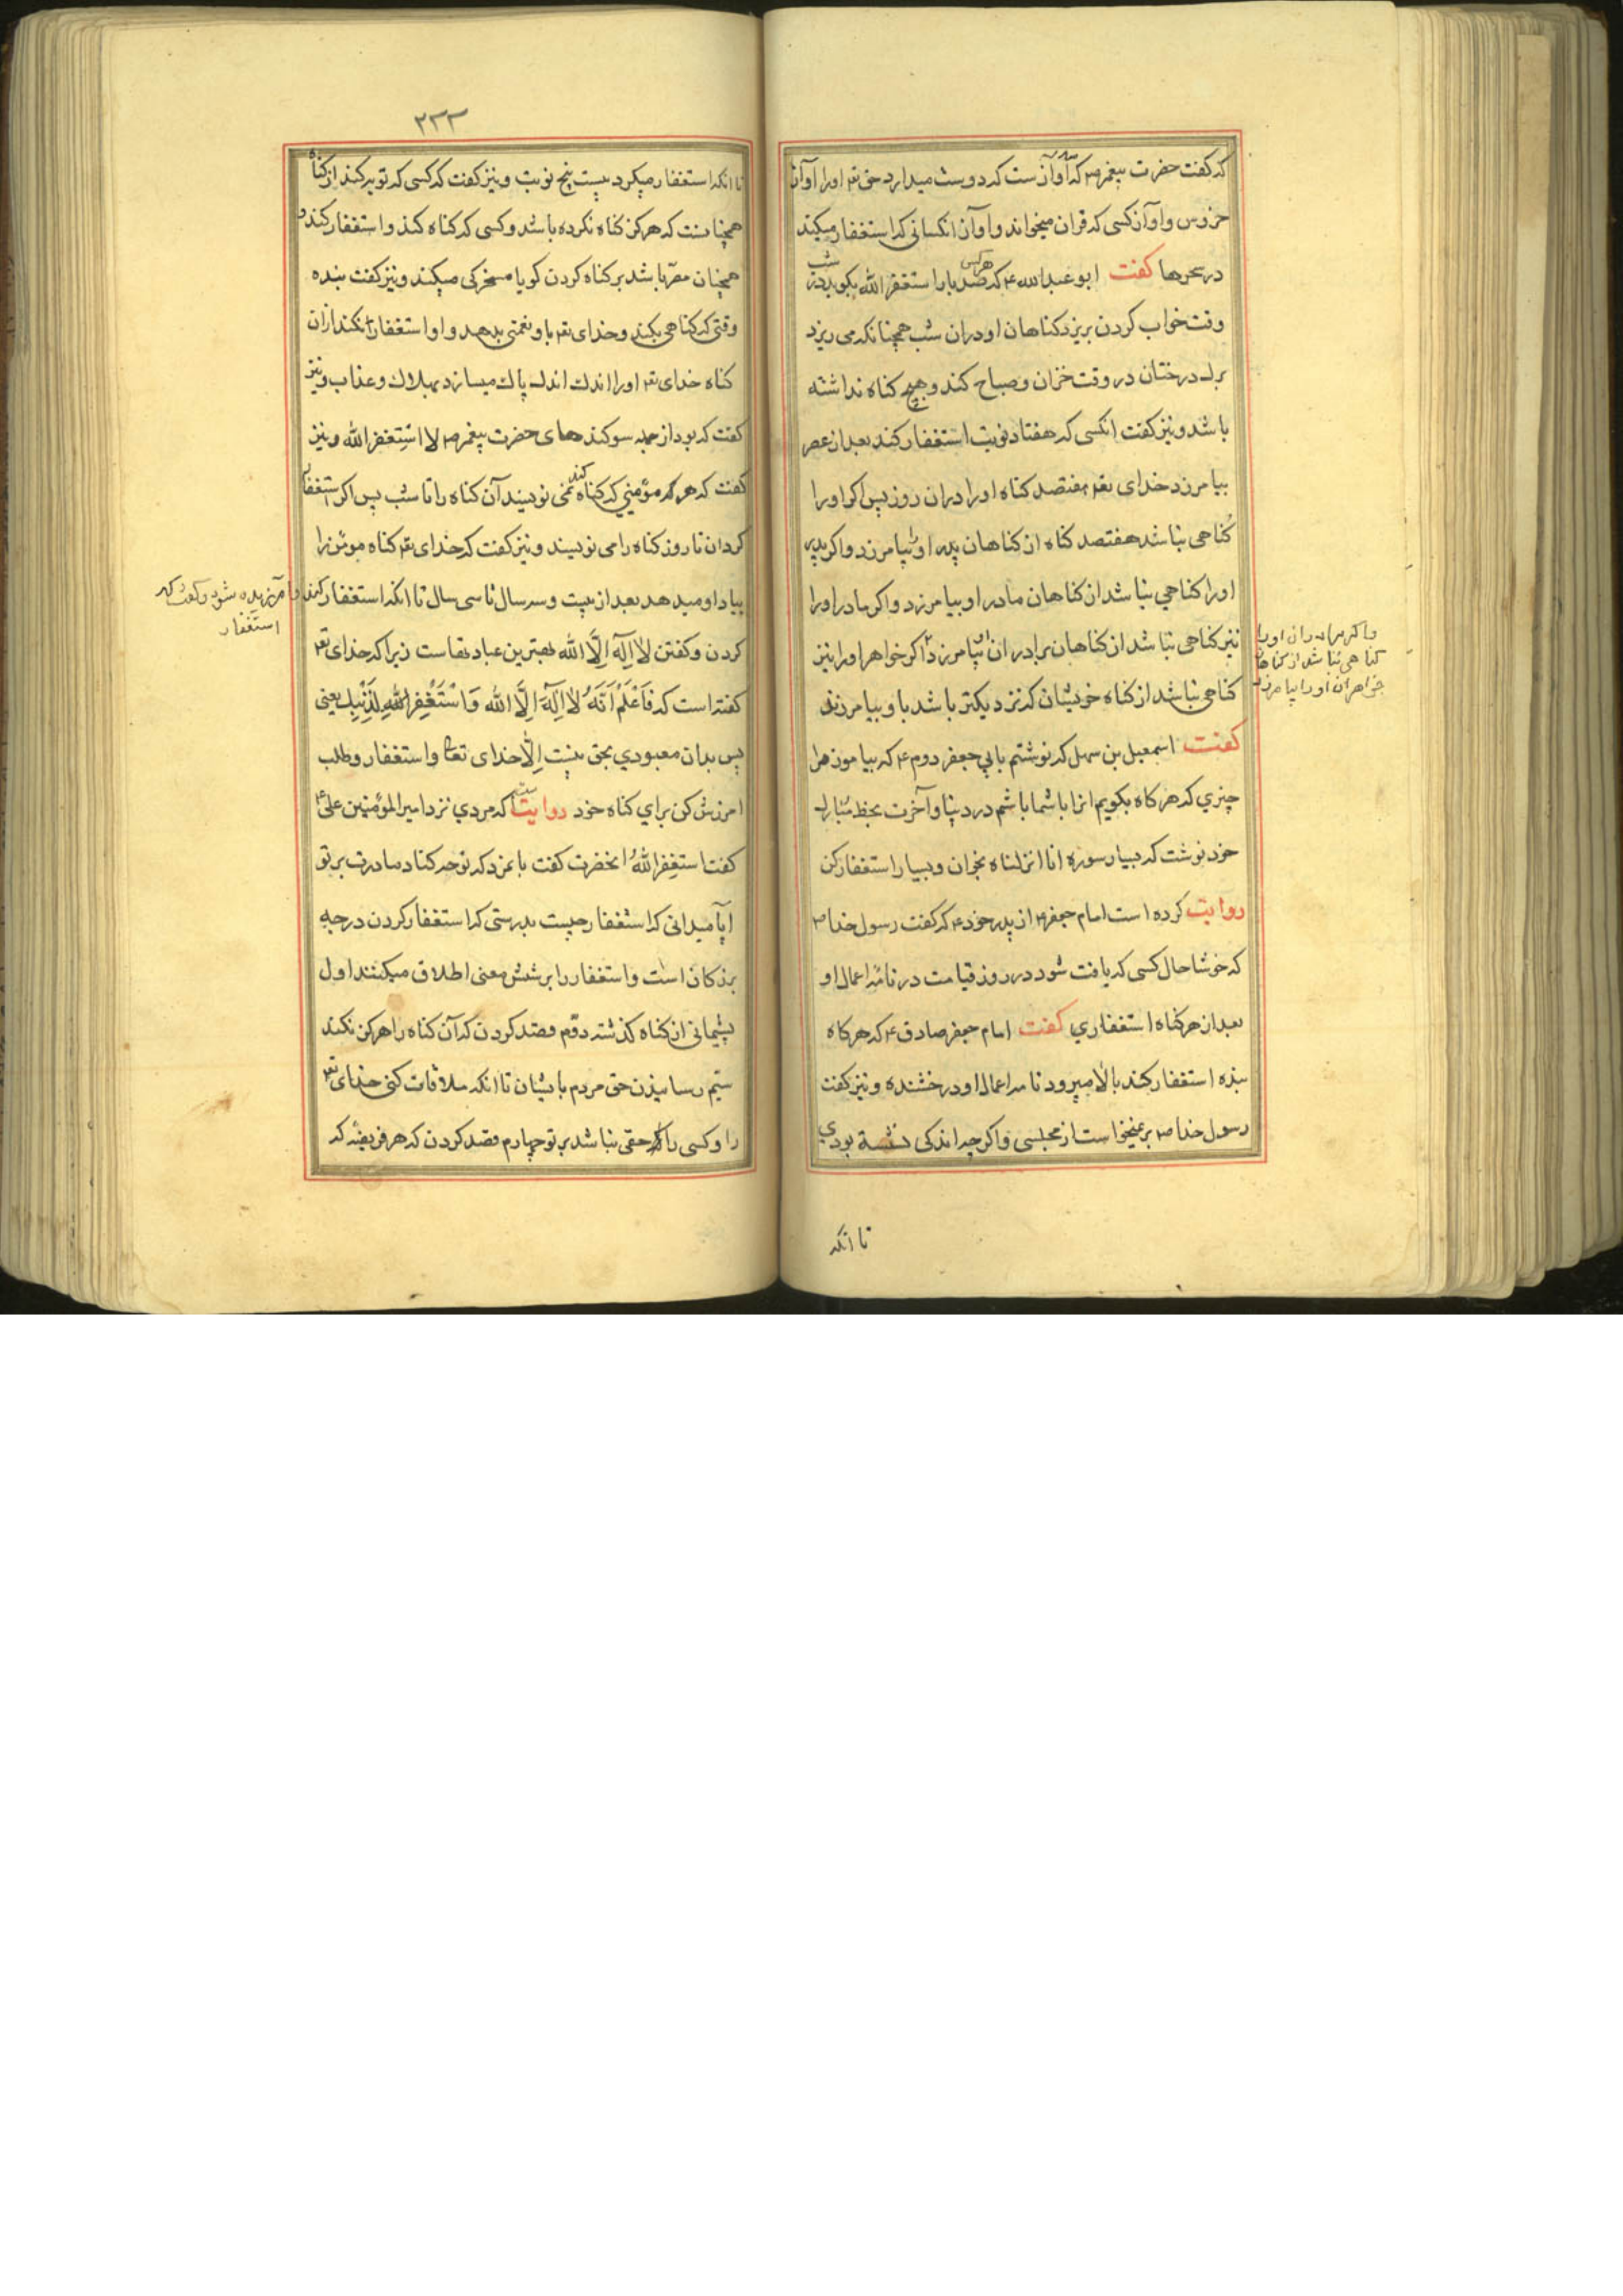 که گفت حضرت پیغمبر ص که سه آوازست که دوست میدارد حق تع اورا اواز
خروس و اواز کسی که قران میخواند و اواز انکسانی که استغفار میکنند
در سحرها گفت ابو عبدالله ع که هرکس صد بار استغفر الله بکوید در شب
وقت خواب کردن بریزد کناهان او دران شب همچنانکه می ریزد
برک درختان در وقت خزان و صباح کند و هیچ کناه نداشته
باشد و نیز کفت انکسی که هفتاد نوبت استغفار کند بعد از عصر
بیامرزد خدای تع هفتصد کناه اورا دران روز پس اکر اورا
کناهی نباشد هفتصد کناه از کناهان پدر او بیامرزد و اکر پدر
اورا کناهی نباشد از کناهان مادر او بیامرزد و اکر مادر اورا
نیز کناهی نباشد از کناهان برادران او بیامرزد و اکر خواهر اورا نیز
واکر برادران اورا
کناهی نباشد از کناهان
خواهران اورا بیامرزد
کناهی نباشد از کناه خویشان که نزدیکتر باشد باو بیامرزند
کفت اسمعیل بن سهل که نوشتم بابی جعفر دوم ع که بیاموز مرا
چیزی که هرکاه بکویم انرا با شما باشم در دنیا و آخرت بخط مبارک
خود نوشت که بسیار سوره انا انزلناه بخوان و بسیار استغفار کن
روایت کرده است امام جعفر ع از پدر خود ع که کفت رسول خدا ص
که خوشا حال کسی که یافت شود در روز قیامت در نامه اعمال او
بعد از هر کناه استغفاری کفت امام جعفر صادق ع که هرکاه
بنده استغفار کند بالا میرود نامه اعمال او درخشنده و نیز کفت
رسول خدا ص برنمیخواست از مجلسی و اکرچه اندکی نشسته بودی
تا انکه
۲۳۳
تا انکه استغفار میکرد بیست پنج نوبت و نیز کفت که کسی که توبه کند از کناه
همچنانست که هرکز کناه نکرده باشد و کسی که کناه کند و استغفار کند و
همچنان مصر باشد بر کناه کردن کویا مسخرکی میکند و نیز کفت بنده
وقتی که کناهی بکند و خدای تع باو نعمتی بدهد و او استغفار نکند ازان
کناه خدای تع اورا اندک اندک پاک میسازد بهلاک و عذاب و نیز
کفت که بود از جمله سوکندهای حضرت پیغمبر ص لا استغفر الله و نیز
کفت که هر مؤمنی که کناه کند نمی نویسند آن کناه را تا شب پس اکر استغفار
کرد ان تا روز کناه را می نویسند و نیز کفت که خدای تع کناه مومن را
بیاد او میدهد بعد از بیست و سه سال تا سی سال تا انکه استغفار کند و
آمرزیده شود و کفت که
استغفار
کردن و کفتن لا اله الا الله بهترین عبادتهاست زیرا که خدای تع
کفته است که فاعلم انه لا اله الا الله و استغفر الله لذنبک یعنی
پس بدان معبودی بحق نیست الا خدای تعا و استغفار و طلب
امرزش کن برای کناه خود روایتست که مردی نزد امیر المؤمنین علی ع
کفت استغفر الله انحضرت کفت بانمرد که نوحه کناد مادرت بر تو
ایا میدانی که استغفار چیست بدرستی که استغفار کردن درجه
بزرکان است و استغفار را بر شش معنی اطلاق میکنند اول
پشیمانی از کناه کذشته دوم قصد کردن که آن کناه را هرکز نکند
سیم رسانیدن حق مردم بایشان تا انکه ملاقات کنی خدای تع
را و کسی را حقی نباشد بر تو چهارم قصد کردن که هر فریضه که